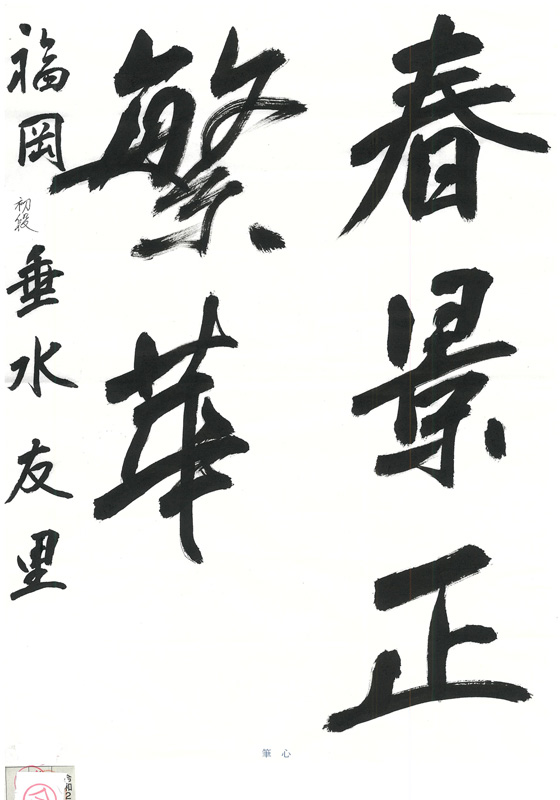 春景正
繁華
福岡 初段 垂水友里
筆心